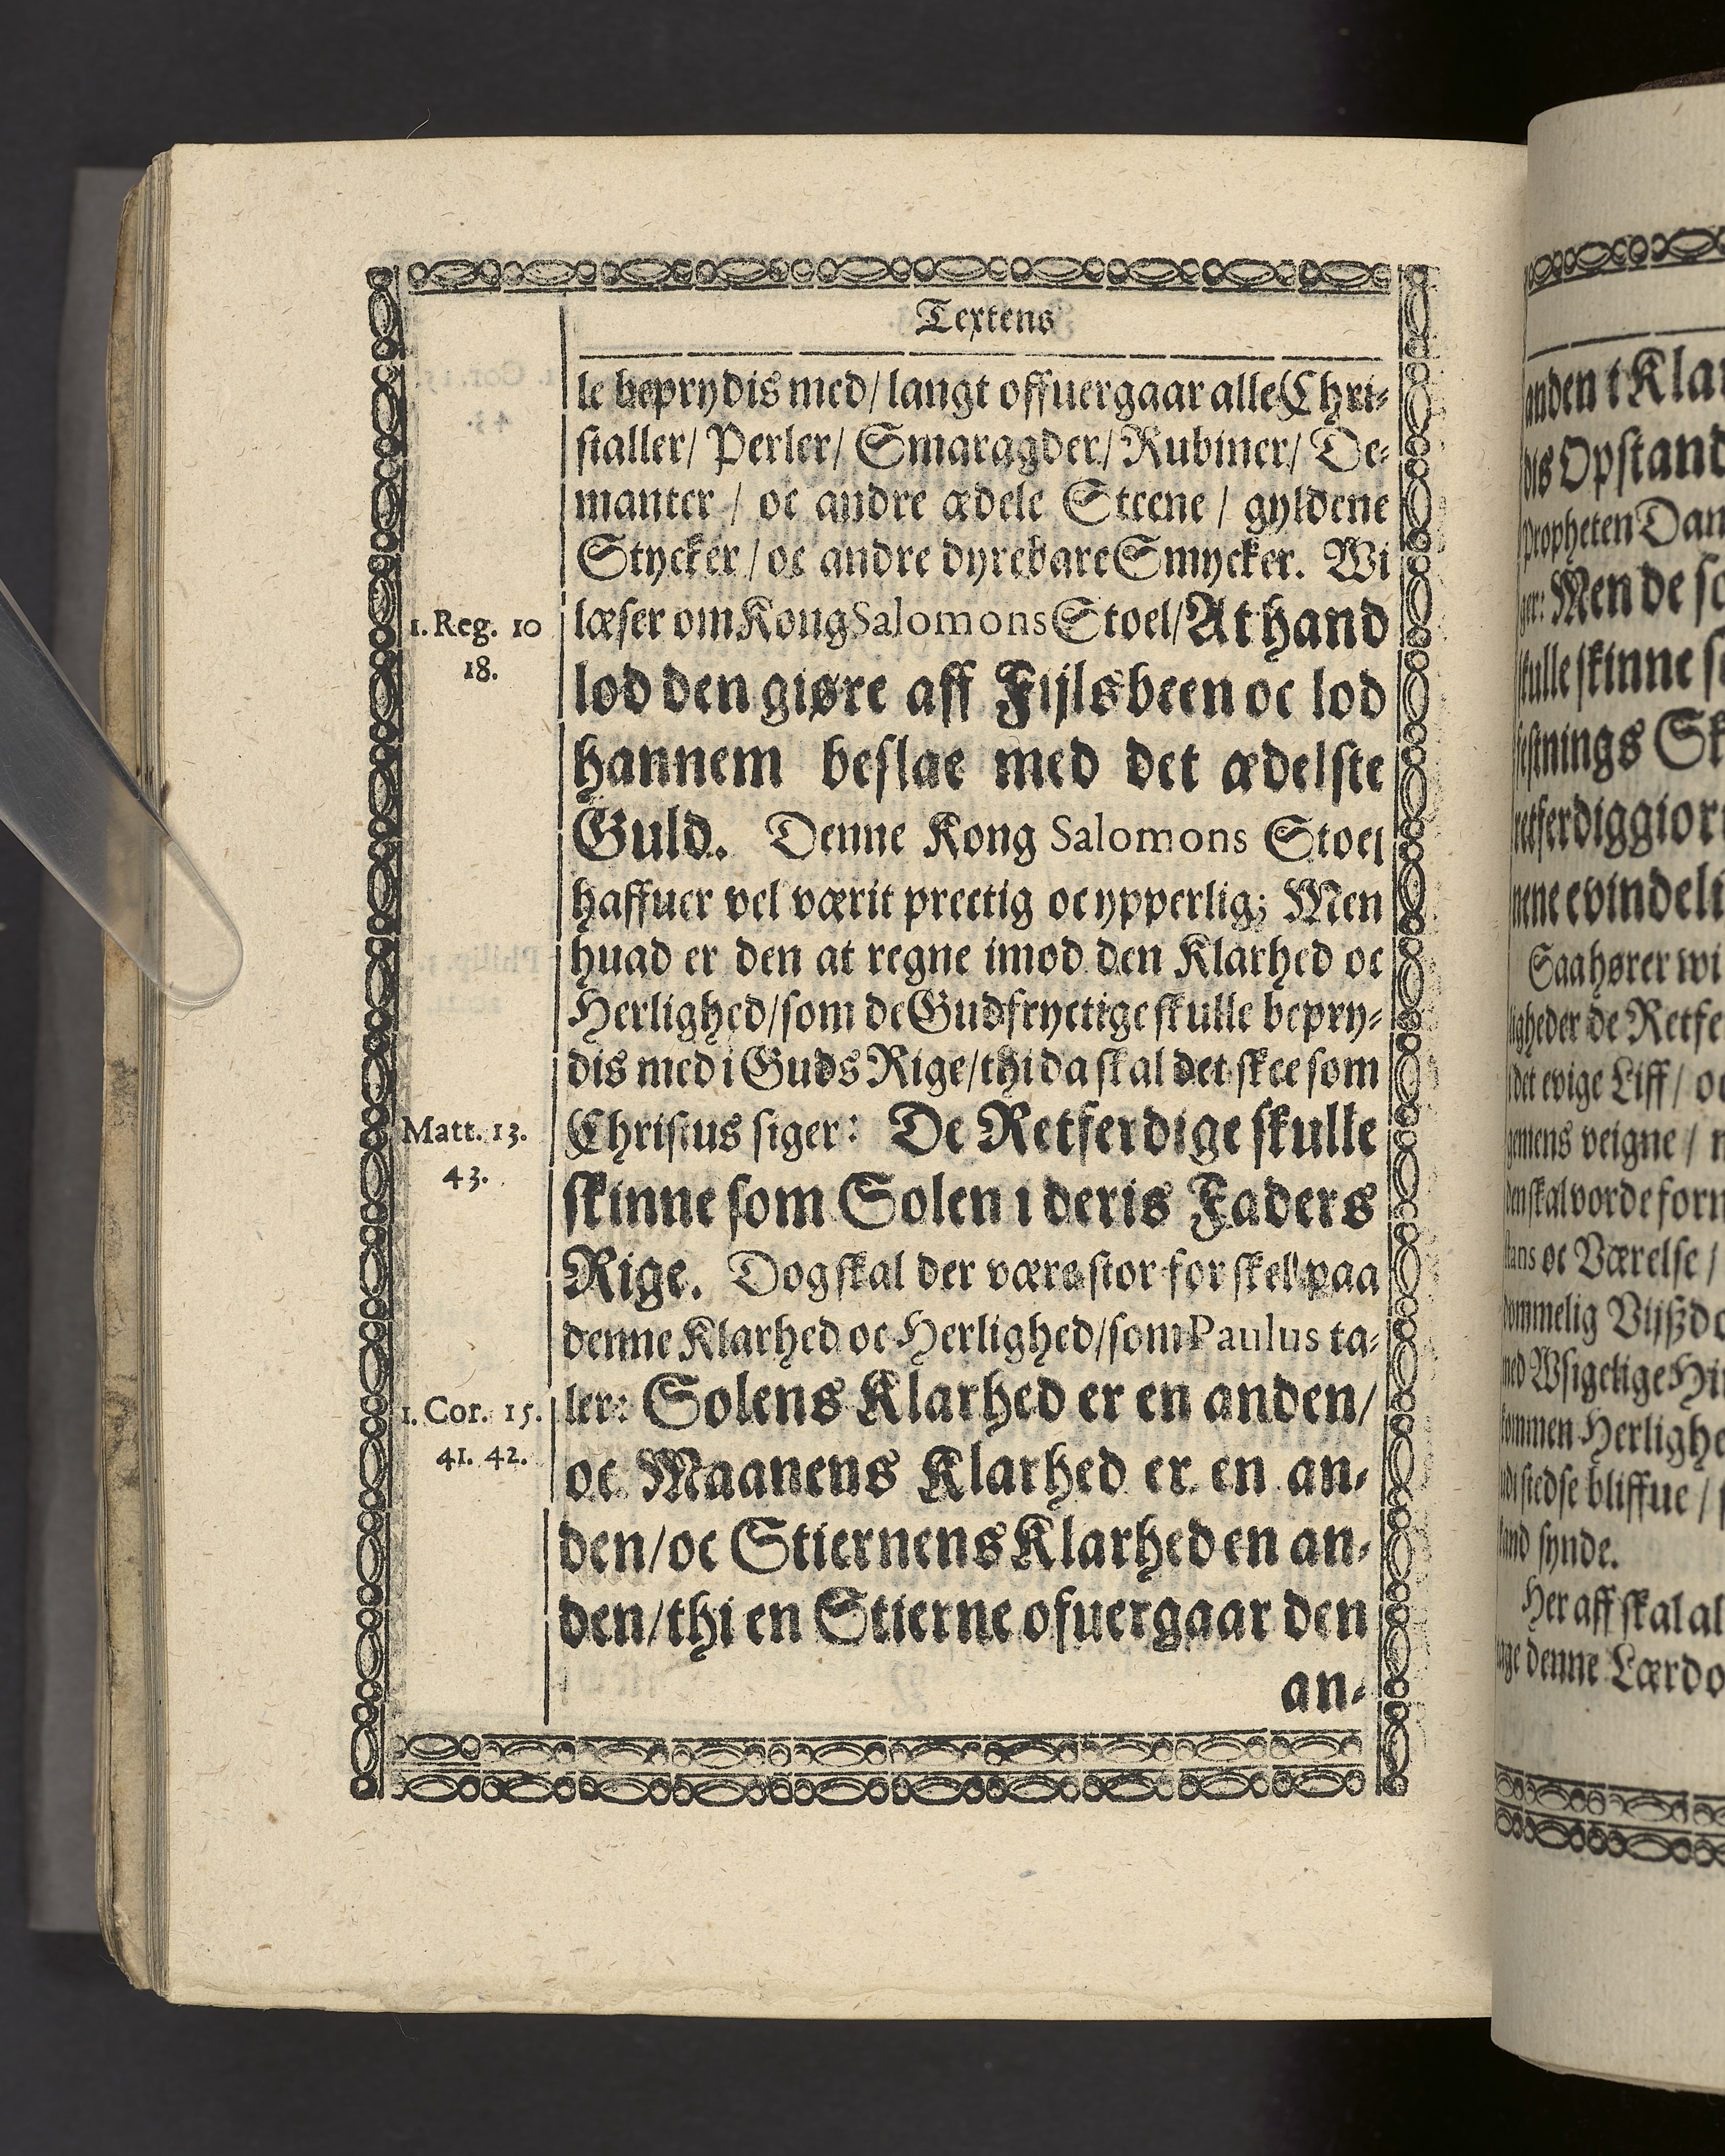 Textens
le beprydis med/ langt offuergaar alle Chri-
staller/ Perler/ Smaragder/ Rubiner/ De-
manter / oc andre ædele Steene / gyldene
Stycker / oc andre dyrebare Smycker. Wi
1. Reg. 10
18.
læser om Kong Salomons Stoel/ At hand
lod den giøre aff Fijlsbeen oc lod
hannem beslae med det ædelste
Guld. Denne Kong Salomons Stoel
haffuer vel værit prectig oc ypperlig; Men
huad er den at regne imod den Klarhed oc
Herlighed/ som de Gudfryctige skulle bepry-
dis med i Guds Rige/ thi da skal det skee som
Matt. 13.
43.
Christus siger: De Retferdige skulle
skinne som Solen i deris Faders
Rige. Dog skal der være stor forskel paa
denne Klarhed oc Herlighed/ som Paulus ta-
1. Cor. 15.
41. 42.
ler: Solens Klarhed er en anden/
oc Maanens Klarhed er en an-
den/ oc Stiernens Klarhed en an-
den/ thi en Stierne ofuergaar den
an-
anden i Klar
dis Opstand
Propheten Dan
ger: Men de so
skulle skinne s
festnings Sk
retferdiggiør
nene evindeli
Saa hører wi
ligheder de Retfe
det evige Liff / oc
gemens veigne /
den skal vorde forn
stans oc Værelse /
kommelig Vijßdo
med Wsigelige Hi
kommen Herlighe
stedse bliffue /
synde.
Her aff skal al
tage denne Lærdo